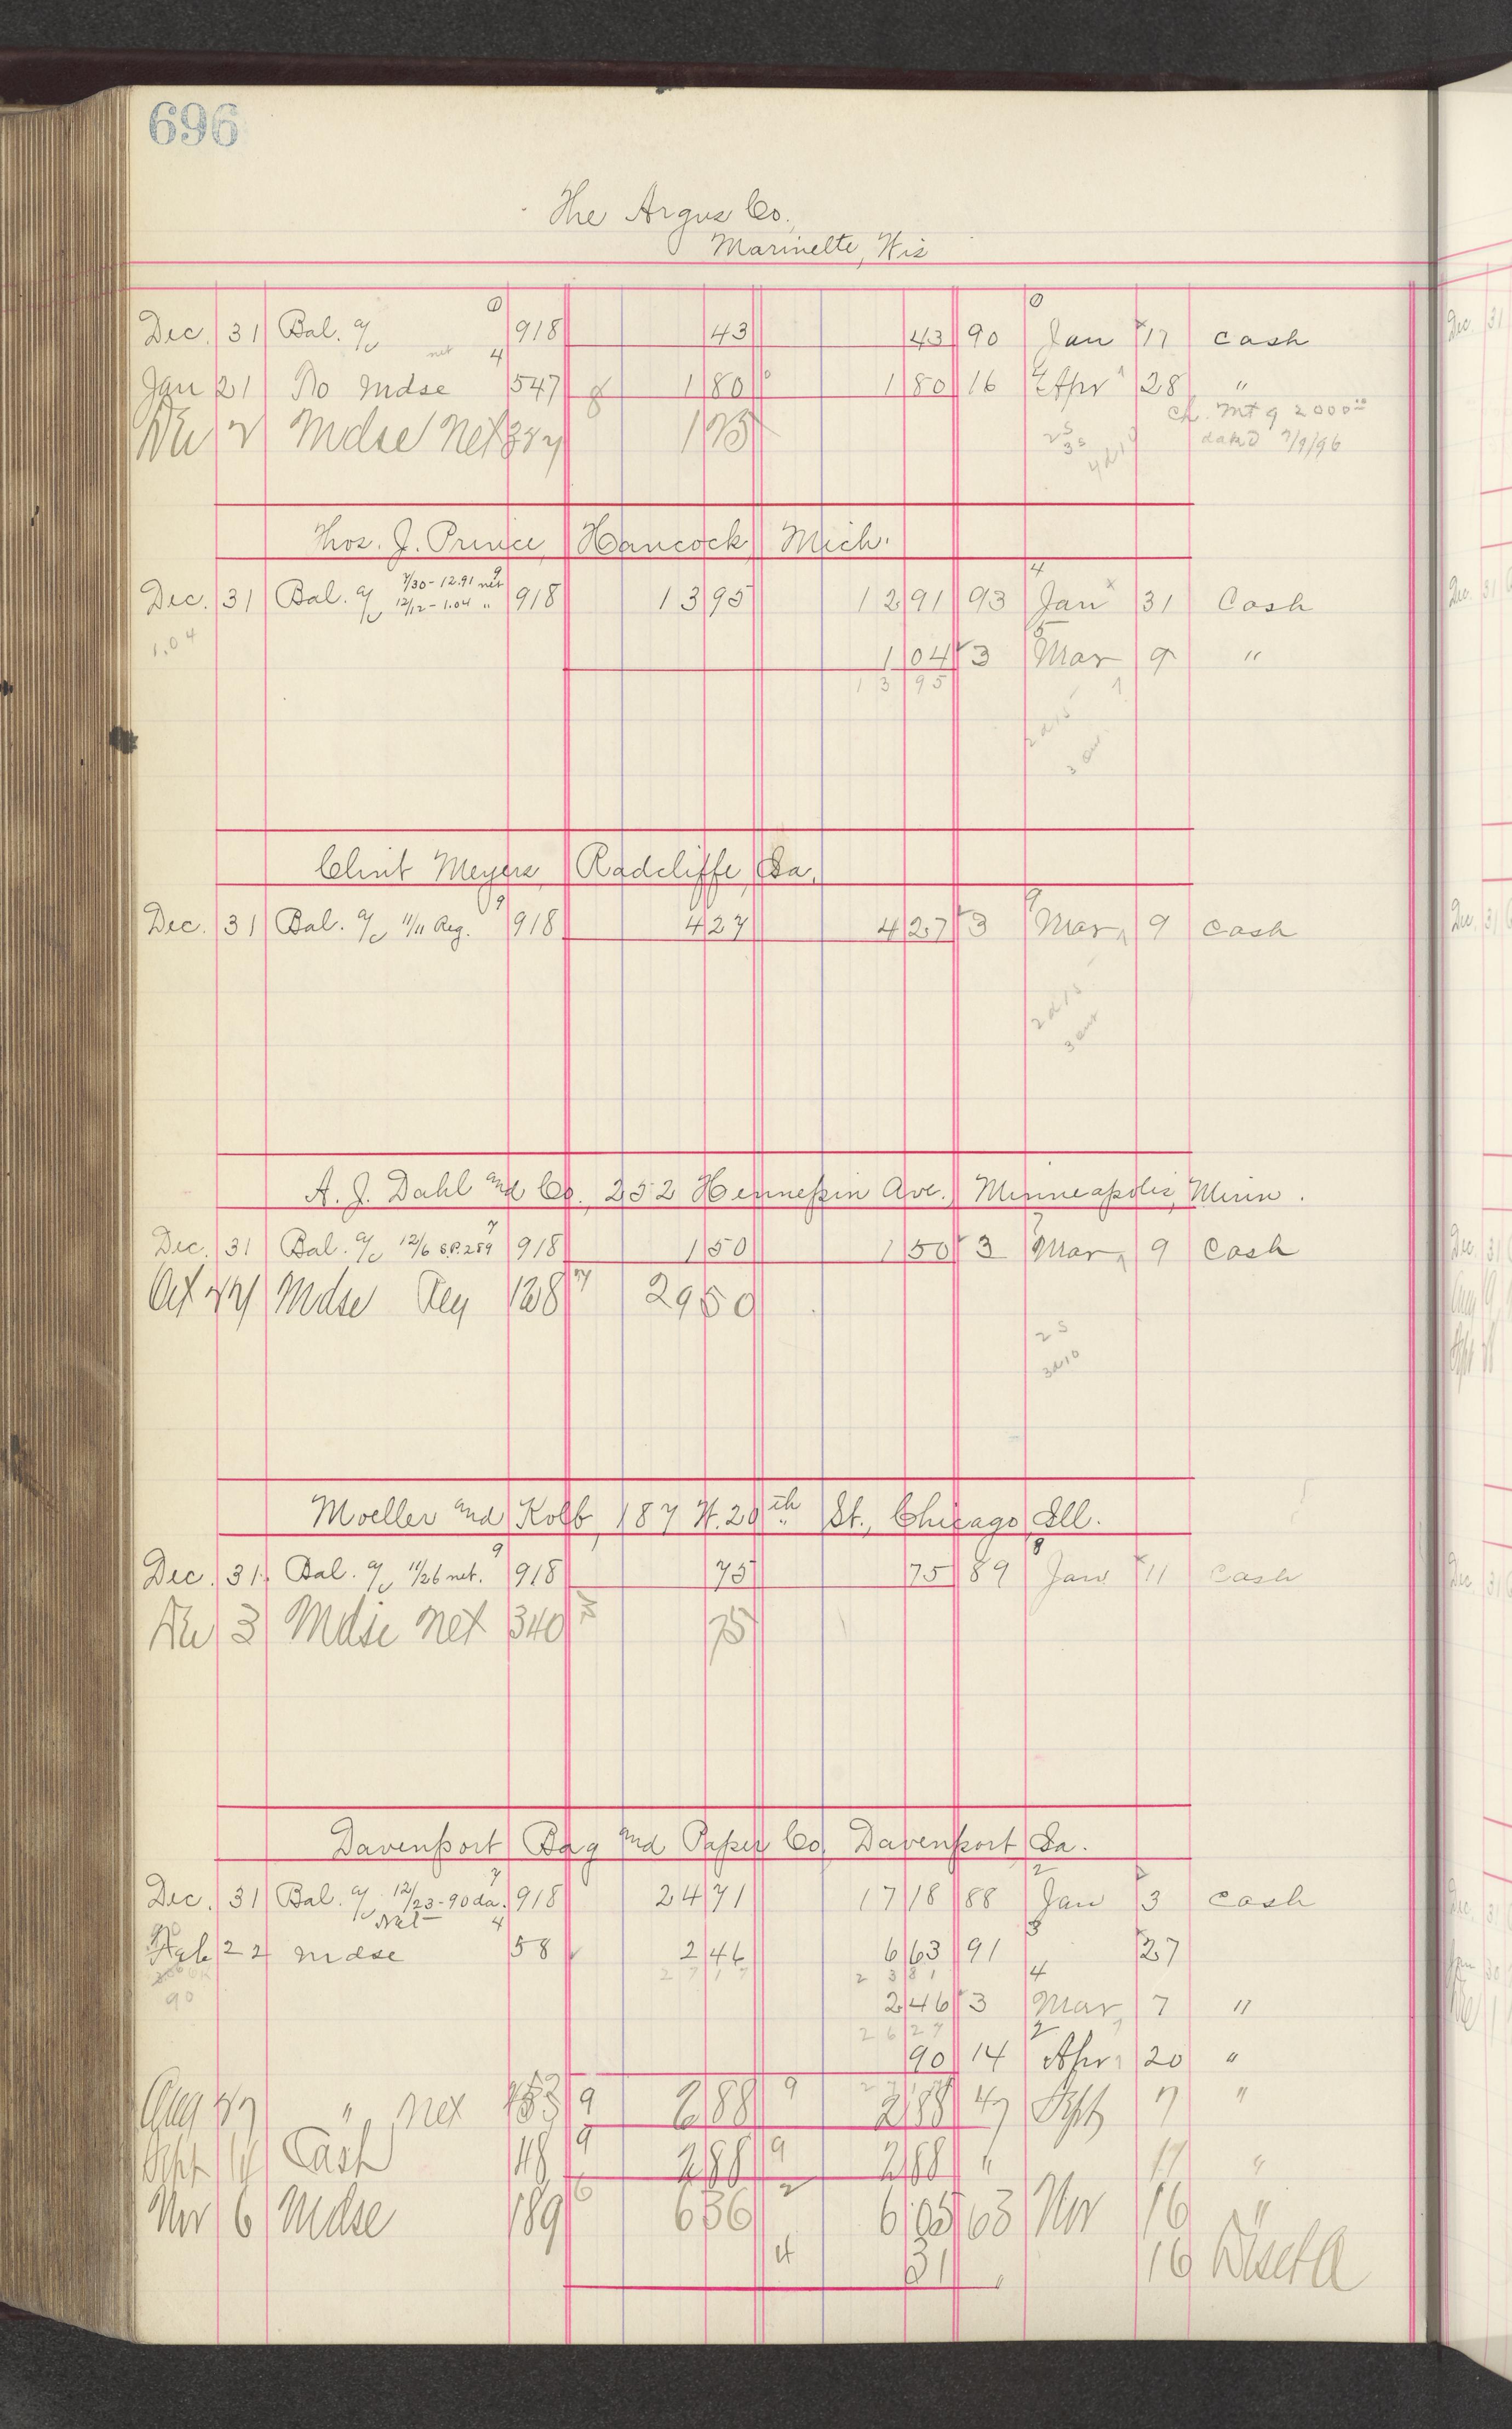 696
The Argus Co.,
Marinette, Wis
Dec. 31 Bal. a/c 918 43 43 90 Jan 17 Cash
net 4
Jan 21 To Mdse 547 1 80 1 80 16 Apr 28 "
Ch. Mt g 2000
Mdse Net 1 75 25 35 dated 7/9/96
Thos. J. Prince, Hancock, Mich.
7/30 - 12.91 net 9 4
Dec. 31 Bal. a/c 12/12 - 1.04 " 918 13 95 12 91 93 Jan 31 Cash
1.04 1 04 3 Mar 9 "
13 95
2d15
3 our
Clint Meyers, Radcliffe, Ia.
Dec. 31 Bal. a/c 11/11 Reg. 9 918 4 27 4 27 3 Mar 9 Cash
2d15
3 our
A. J. Dahl and Co., 252 Hennepin Ave., Minneapolis, Minn.
Dec. 31 Bal. a/c 12/6 S.P. 289 7 918 1 50 1 50 3 Mar 9 Cash
Oct 27 Mdse Reg 128 29 50
25
3d10
Moeller and Kolb, 187 W. 20th St., Chicago, Ill.
Dec. 31 Bal. a/c 11/26 net. 9 918 75 75 89 Jan 11 Cash
3 Mdse net 340 75
Davenport Bag and Paper Co., Davenport, Ia.
Dec. 31 Bal. a/c 12/23 - 90 da. 7 918 24 71 17 18 88 Jan 3 Cash
Net 4
Feb 22 Mdse 58 2 46 6 63 91 27
27 17 23 81 4
90 2 46 3 Mar 7 "
26 27
90 14 Apr 20 "
Aug 27 " Net 9 2 88 9 2 88 47 Sept 7 "
Sept 14 Cash 48 9 2 88 9 2 88 " 17 "
Nov 6 Mdse 189 6 6 36 2 6 05 63 Nov 16 "
4 31 " 16 Disct A